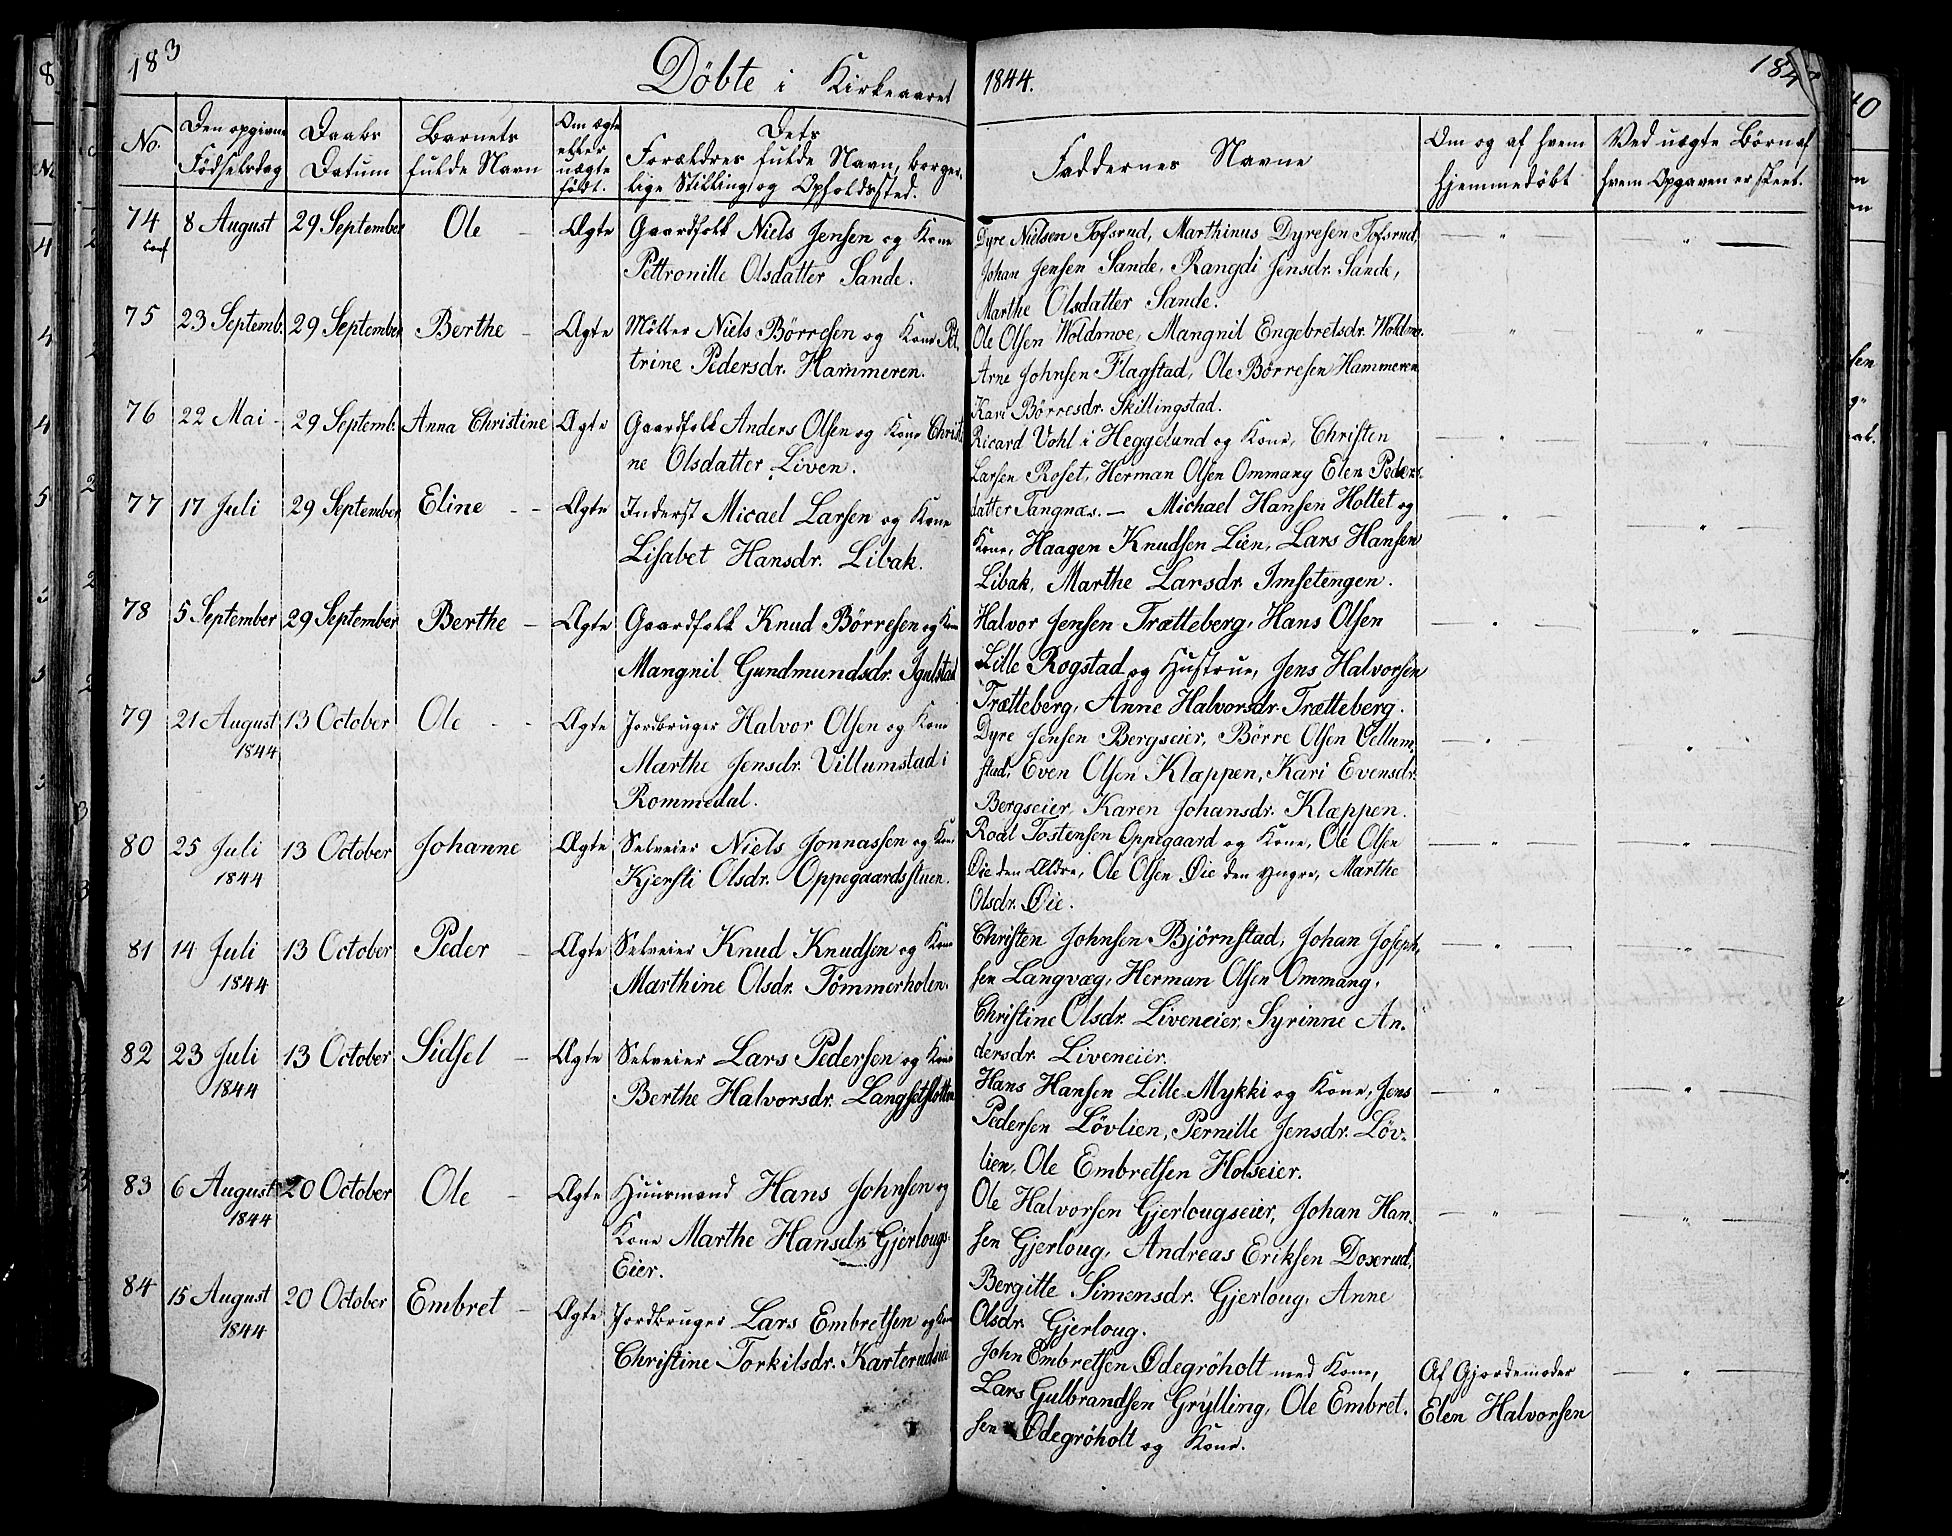 183
Döbte i Kirkeaaret 1844.
No.
Den opgivne Födselsdag
Daabs Datum
Barnets fulde Navn
Om ægte eller uægte födt.
Dets Forældres fulde Navn, borgerlige Stilling og Opholdssted.
Faddernes Navne
Om og af hvem hjemmedöbt
Ved uægte Börn af hvem Opgaven er skeet.
74 8 August 29 September Ole - Ægte Gaardfolk Niels Jensen og Kone
Pettronille Olsdatter Sande.
Dyre Nielsen Tofsrud, Marthinus Dyresen Tofsrud,
Johan Jensen Sande, Rangdi Jensdr. Sande,
Marthe Olsdatter Sande.
75 23 Septemb. 29 September Berthe - Ægte Möller Niels Börresen og Kone Pet,
trine Pedersdr. Hammeren.
Ole Olsen Woldmoe, Mangnil Engebretsdr. Woldmo.
Arne Johnsen Flagstad, Ole Börresen Hammeren
Kari Börresdr. Skillingstad.
76 22 Mai - 29 Septemb. Anna Christine Ægte Gaardfolk Anders Olsen og Kone Christi
ne Olsdatter Liven.
Ricard Vohl i Heggelund og Kone, Christen
Larsen Roset, Herman Olsen Ommang Elen Peders
datter Tangnæs. -
77 17 Juli 29 September Eline - - Ægte Inderst Micael Larsen og Kone
Lisabet Hansdr. Libak.
Michael Hansen Holtet og
Kone, Haagen Knudsen Lien, Lars Hansen
Libak, Marthe Larsdr. Imsetengen.
78 5 September 29 September Berthe - Ægte Gaardfolk Knud Börresen og Kone
Mangnil Gundmundsdr. Igelstad
Halvor Jensen Trætteberg, Hans Olsen
Lille Rogstad og Hustrue, Jens Halvorsen
Trætteberg, Anne Halvorsdr. Trætteberg.
79 21 August 1844 13 October Ole - - Ægte Jordbruger Halvor Olsen og Kone
Marthe Jensdr. Villumstad i
Rommedal.
Dyre Jensen Bergseier, Börre Olsen Vellum,
stad, Even Olsen Klæppen, Kari Evensdr.
Bergseier, Karen Johansdr. Klæppen.
80 25 Juli 1844 13 October Johanne Ægte Selveier Niels Jonnassen og Kone
Kjersti Olsdr. Oppegaardsstuen.
Roal Tostensen Oppegaard og Kone, Ole Olsen
Öie den Ældre, Ole Olsen Öie den yngre, Marthe
Olsdr. Öie.
81 14 Juli 1844 13 October Peder - Ægte Selveier Knud Knudsen og Kone
Marthine Olsdr. Tömmerholen.
Christen Johnsen Björnstad, Johan Joseph,
sen Langvæg, Herman Olsen Ommang,
Christine Olsdr. Liveneier, Syrinne An,
dersdr. Liveneier.
82 23 Juli 1844 13 October Sidsel - Ægte Selveier Lars Pedersen og Kone
Berthe Halvorsdr. Langsetslotten
Hans Hansen Lille Mykki og Kone, Jens
Pedersen Lövlien, Pernille Jensdr. Löv,
lien, Ole Embretsen Holseier.
83 6 August 1844 20 October Ole - Ægte Huusmand Hans Johnsen og
Kone Marthe Hansdr. Gjerlougs-
Eier.
Ole Halvorsen Gjerlougseier, Johan Han,
sen Gjerloug, Andreas Eriksen Doxerud,
Bergitte Simensdr. Gjerloug, Anne
Olsdr. Gjerloug.
84 15 August 1844 20 October Embret - Ægte Jordbruger Lars Embretsen og Kone
Christine Torkilsdr. Karterudseie
John Embretsen Ödegröholt med Kone,
Lars Gulbrandsen Grylling, Ole Embret,
sen Ödegröholt og Kone.
Af Gjordemoder
Elen Halvorsen